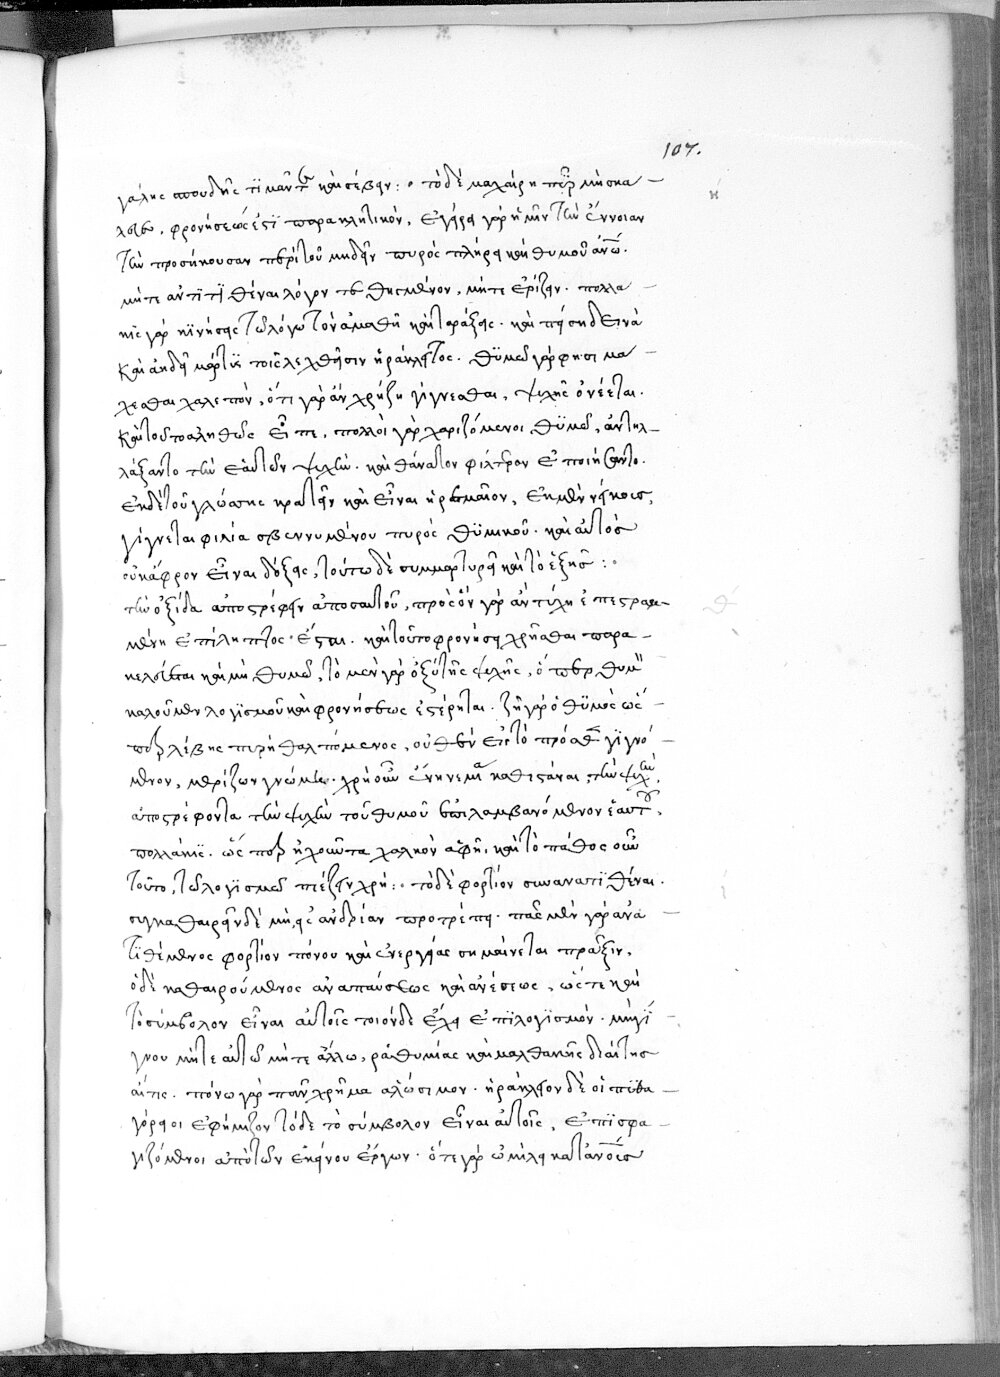 107.
γάλης σπουδῆς τιμᾶν τ καὶ σέβειν: τὸ δὲ μαχαίρη πῦρ μὴ σκα
λεύειν, φρονήσεώς ἐστι παρακλητικόν, ἐγείρει γὰρ ἡμῖν τὴν ἔννοιαν
τὴν προσήκουσαν περὶ τοῦ μηδεῖν πυρὸς πλήρει καὶ θυμοῦ
μήτε ἀντιτιθέναι λόγον τεθηγμένον, μήτε ἐρίζειν. πολλά
κις γὰρ κινήσεις τῷ λόγῳ τὸν ἀμαθῆ καὶ ταράξεις. καὶ πείση δεινὰ
καὶ ἀηδῆ μάρτυς τοῖς λεχθεῖσιν ἡράκλειτος. θυμῷ γάρ φησι μά
χεσθαι χαλεπὸν, ὅτι γὰρ ἂν χρήζη γίγνεσθαι, ψυχῆς ὀνέεται.
καὶ τοῦτο ἀληθῶς εἶπε, πολλοὶ γὰρ χαριζόμενοι θυμῷ, ἀντηλ
λάξαντο τὴν ἑαυτῶν ψυχὴν. καὶ θάνατον φίλτερον ἐποιήσαντο.
ἐκ δὲ τοῦ γλώσσης κρατεῖν καὶ εἶναι ἡρεμαῖον, ἐκ μὲν νείκους,
γίγνεται φιλία σβεννυμένου πυρὸς θυμικοῦ. καὶ αὐτὸς
οὐκ ἄφρων εἶναι δόξεις, τούτω δὲ συμμαρτυρεῖ καὶ τὸ ἑξῆς:
τὴν ὀξίδα ἀποστρέφειν ἀπὸ σαυτοῦ, πρὸς
μένη ἐπίληπτος ἔσται. καὶ τοῦτο φρονήσει χρῆσθαι παρα
κελεύεται καὶ μὴ θυμῷ, τὸ μὲν γὰρ ὀξὺ τῆς ψυχῆς, ὅπερ θυμὸν
καλοῦμεν λογισμοῦ καὶ φρονήσεως ἐστέρηται. ζεῖ γὰρ ὁ θυμὸς ὥσ
περ λέβης πυρὶ θαλπόμενος, οὐθὲν ἐπὶ τὸ πρόσθεν γιγνό
μενον, μερίζων γνώμην. χρὴ οὖν ἐν ἠρεμία καθιστάναι τὴν ψυχὴν,
ἀποστρέφοντα τὴν ψυχὴν τοῦ θυμοῦ ἐπιλαμβανόμενον ἑαυτοῦ,
πολλάκις. ὥσπερ ἠχοῦντα χαλκὸν ἁφῆ, καὶ τὸ πάθος οὖν
τοῦτο, τῷ λογισμῷ πιέζειν χρή: τὸ δὲ φορτίον συνανατιθέναι.
συγκαθαιρεῖν δὲ μὴ, εἰς ἀνδρίαν προτρέπει. πᾶς μὲν γὰρ ἀνα
τιθέμενος φορτίον πόνου καὶ ἐνεργείας σημαίνεται πρᾶξιν,
ὁ δὲ καθαιρούμενος ἀναπαύσεως καὶ ἀνέσεως, ὥστε καὶ
τὸ σύμβολον εἶναι αὐτοῖς τοιόνδε ἔχει ἐπιλογισμόν. μὴ γί
γνου μήτε αὐτῷ μήτε ἄλλω, ῥαθυμίας καὶ μαλθακῆς διαίτης
αἴτις. πόνω γὰρ πᾶν χρῆμα ἁλώσιμον. ἡράκλειον δὲ οἱ πυθα
γόρειοι ἐφήμιζον τόδε τὸ σύμβολον εἶναι αὐτοῖς, ἐπισφρα
γιζόμενοι ἀπὸ τῶν ἐκείνου ἔργων. ὅτε γὰρ ὡμίλει κατ' ἀνθρώπους